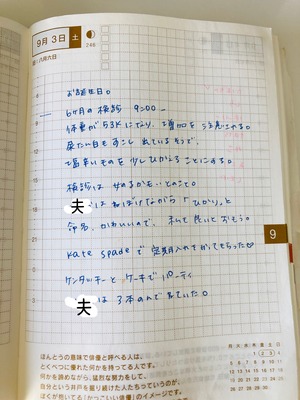 9月3日 土
246
旧|八月六日
お誕生日。
6ヶ月の検診 9:00〜
体重が53Kになり、増加を注意される。
尿たん白もすこし出ているそうで、
塩辛いものを少しひかえることにする。
検診は かもとのこと。
夫 はねぼけながら「ひかり」と
命名。かわいいので、私も良いとおもう。
Kate spadeで定期入れをかってもらった♡
ケンタッキーとケーキでパーティ
夫 は3本のんで た。
9
ほんとうの意味で俳優と呼べる人は、
とくべつに優れた何かを持ってる人です。
何かを諦めながら、猛烈な努力をして、
自分という井戸を掘り続けた人たちっていうのが、
ぼくが抱いてる「かっこいい俳優」のイメージです。
月 火 水 木 金 土 日
1 2 3 4
5 6 7 8 9 10 11
12 13 14 15 16 17 18
19 20 21 22 23 24 25
26 27 28 29 30